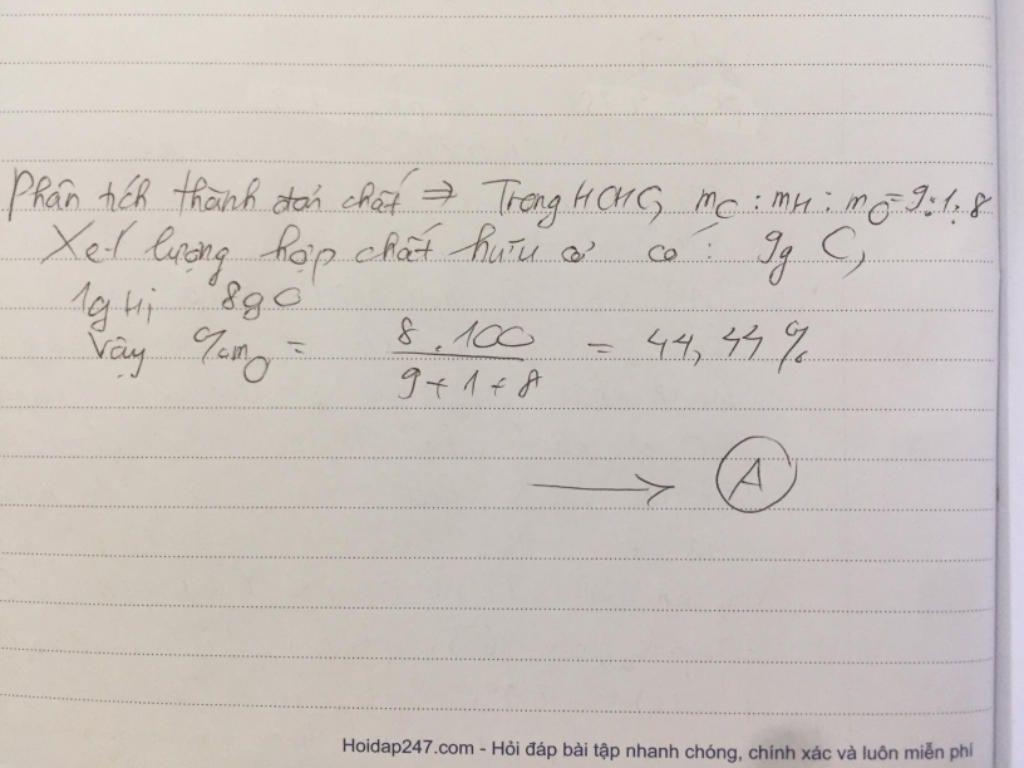 Phân tích thành đơn chất ⇒ Trong HCHC, mC : mH : mO = 9:1:8
Xét lượng hợp chất hữu cơ có : 9g C,
1g H, 8g O
Vậy %mO = 8.100 / 9+1+8 = 44,44%
→ A
Hoidap247.com - Hỏi đáp bài tập nhanh chóng, chính xác và luôn miễn phí